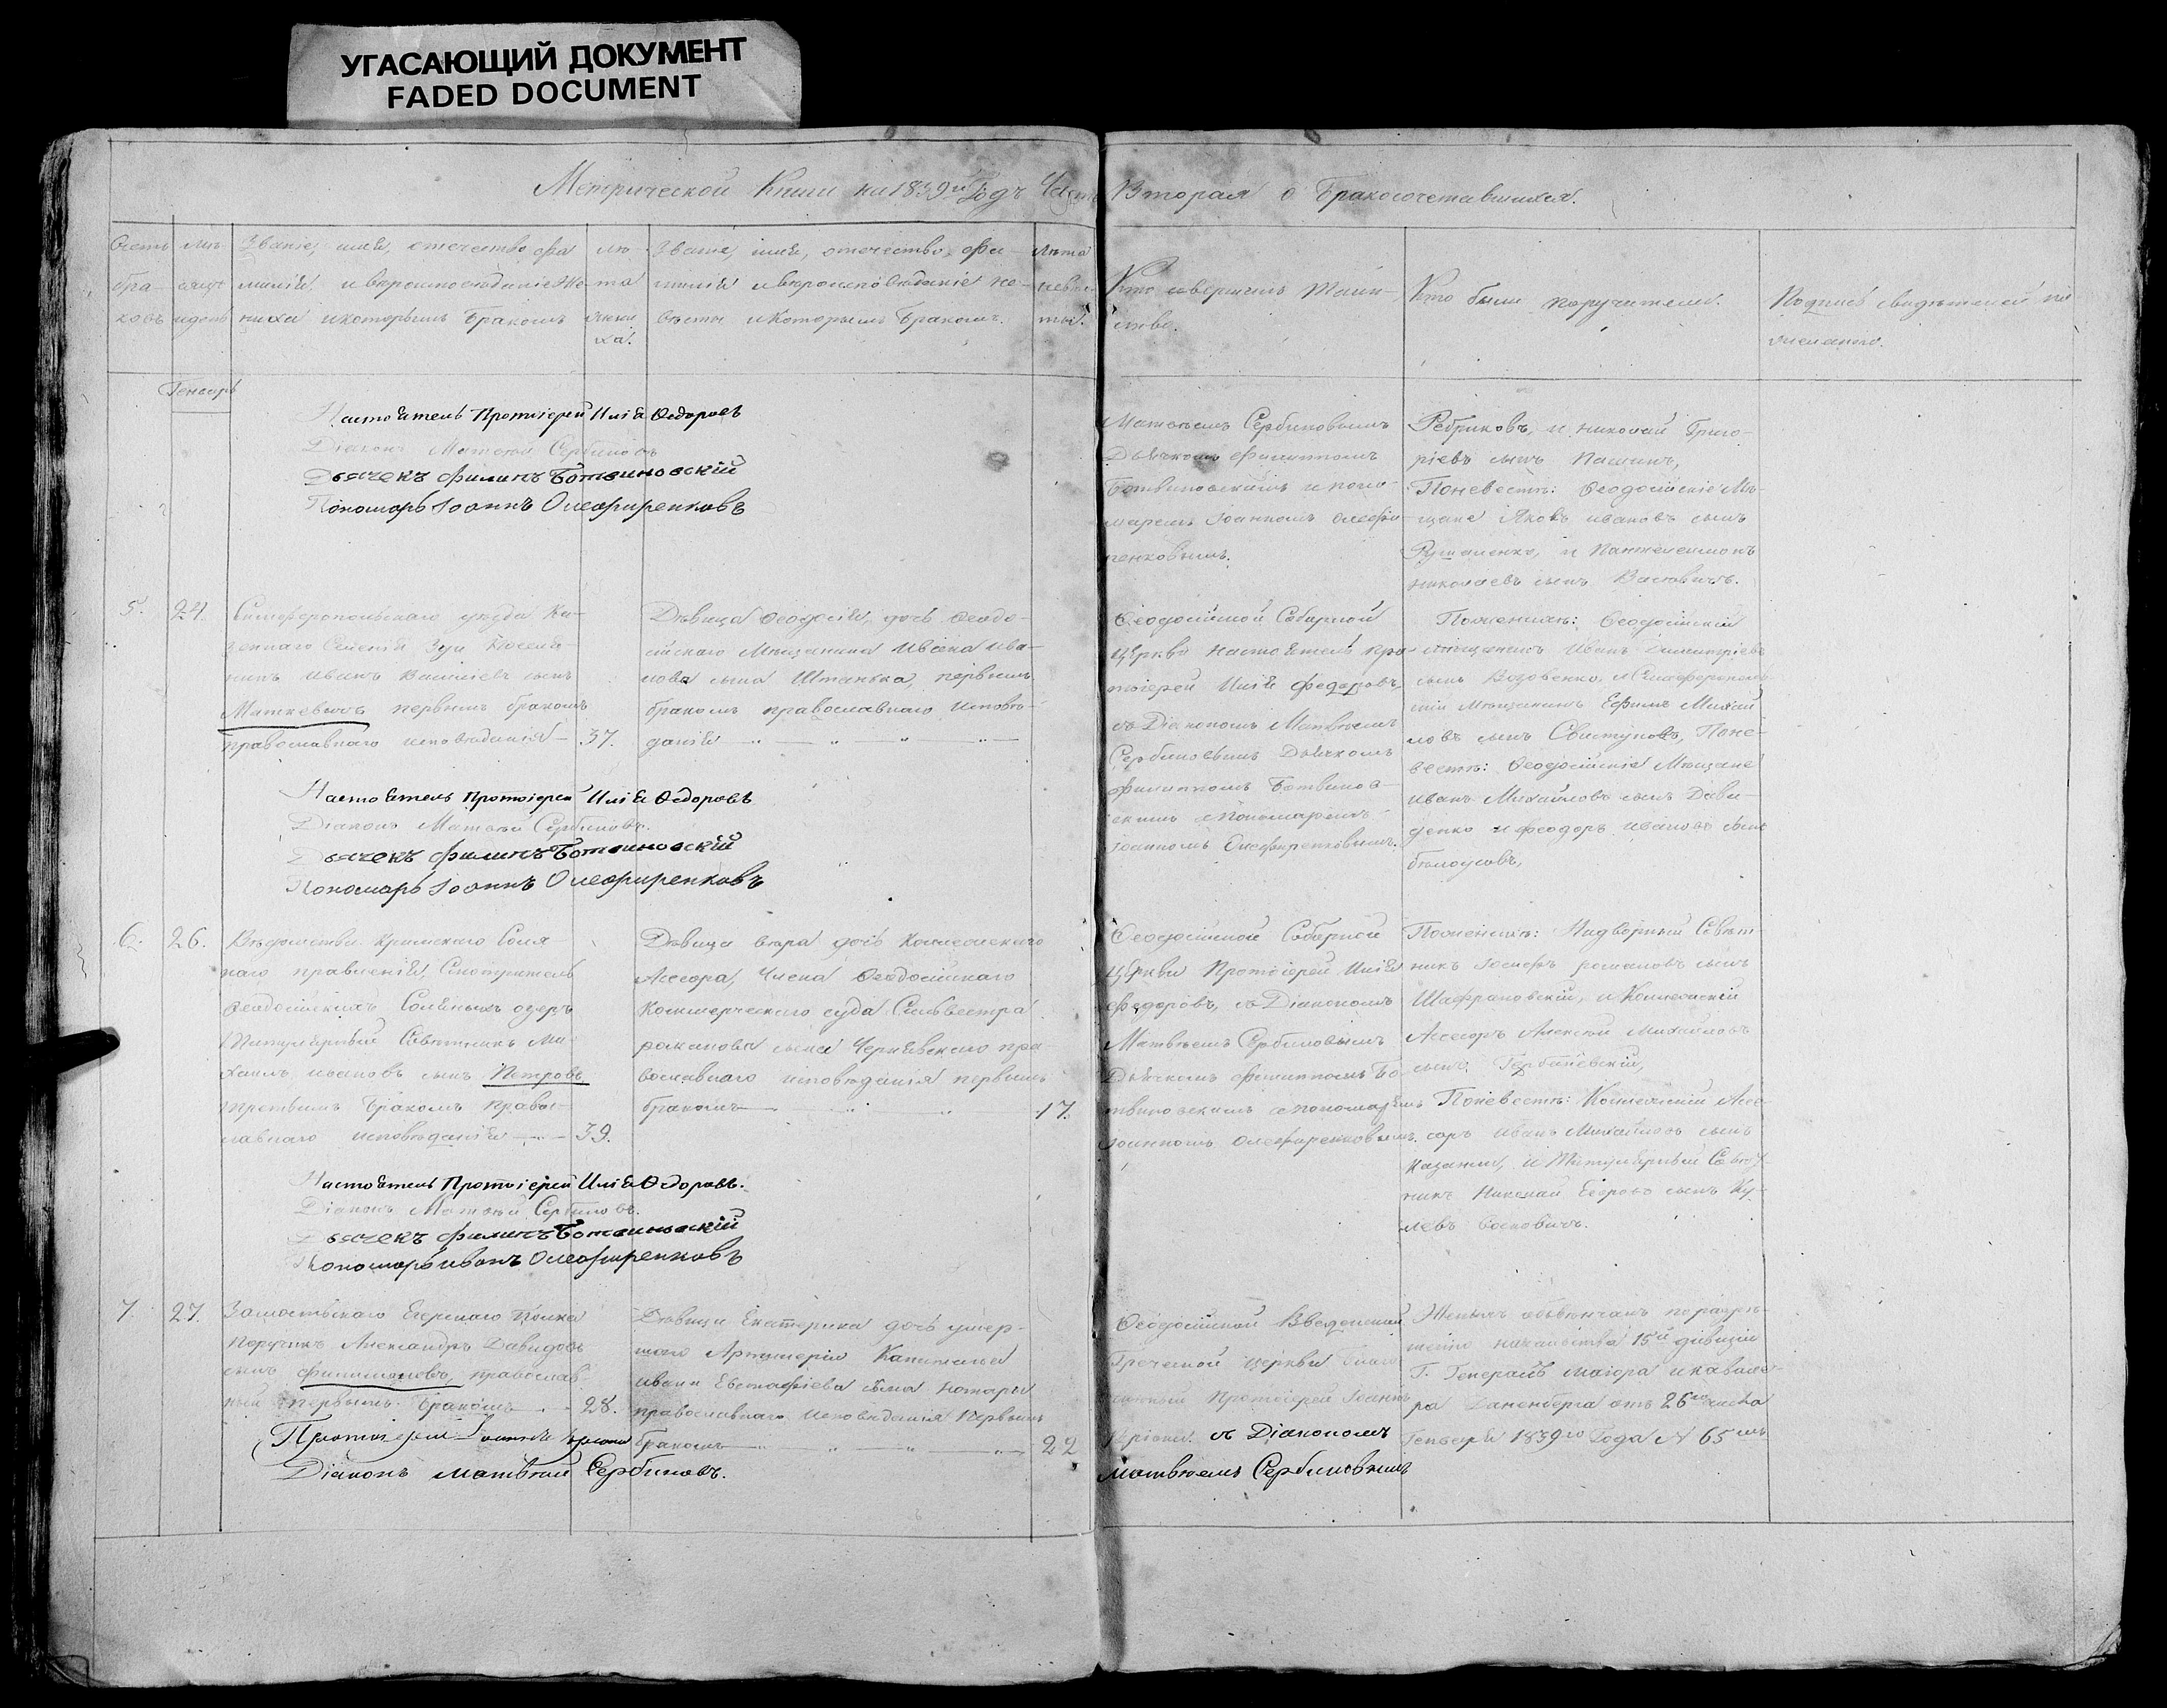 УГАСАЮЩИЙ ДОКУМЕНТ
FADED DOCUMENT
Метрической Книги на 1839й Годъ Часть Вторая о бракосочетавшихся.
Счетъ бра- ковъ
Мѣ- сяцъ и день
Званіе, имя, отечество, фа-
милія и вѣроисповѣданіе Же-
ниха и которымъ бракомъ
лѣ-
та
жени
ха.
Званіе, имя, отечество, фа-
милія и вѣроисповѣданіе не-
вѣсты и которымъ бракомъ.
Лѣта
невѣс-
ты.
Кто совершилъ Таин-
ство.
Кто были поручители.
Подпись свидѣтелей по
желанію.
Генварь
Настоятель Протоіерей Илія Ѳедоровъ
Діаконъ Матѳей Сербиновъ
Дьячекъ Филипъ Ботвиновскій
Пономарь Іоаннъ Олефиренковъ
Матвѣемъ Сербиновымъ
Дьячкомъ Филиппомъ
Ботвиновскимъ и поно-
маремъ Іоанномъ Олефи
ренковымъ.
Ребриковъ, и Николай Григо-
ріевъ сынъ Пашинъ,
Поневестѣ: Ѳеодосійскіе Мѣ-
щане Яковъ Ивановъ сынъ
и Пантелеимонъ
Николаевъ сынъ
5.
24.
Симферопольскаго уѣзда Ка-
зеннаго Селенія Зуи Поселя-
нинъ Иванъ Василіевъ сынъ
Маткевичъ первымъ бракомъ
православнаго исповѣданія 37.
Дѣвица Ѳеодосія, дочь Ѳеодо-
сійскаго Мѣщанина Ивана Ива-
нова сына Штанька, первымъ
бракомъ православнаго исповѣ-
данія
Ѳеодосійской Соборной
Церкви Настоятель про-
тоіерей Илія Федоровъ,
съ Діакономъ Матвѣемъ
Сербиновымъ Дьячкомъ
Филиппомъ Ботвинов-
скимъ и Пономаремъ
Іоанномъ Олефиренковымъ.
Поженихѣ: Ѳеодосійскій
мѣщанинъ Иванъ Димитріевъ
сынъ Возовенко, и Симферополь-
скій Мѣщанинъ Ефимъ Михай
ловъ сынъ Свистуновъ, Поне-
вестѣ: Ѳеодосійскіе Мѣщане
Иванъ Михайловъ сынъ Дави-
денко и Феодоръ Ивановъ сынъ
Бѣлоусовъ.
Настоятель Протоіерей Илія Ѳедоровъ
Діаконъ Матѳей Сербиновъ.
Дьячекъ Филипъ Ботвиновскій
Пономарь Іоаннъ Олефиренковъ
6.
26.
Вѣдомства Крымскаго Соля-
наго правленія, Смотритель
Ѳеодосійскихъ Соляныхъ озеръ
Титулярный Совѣтникъ Ми-
хаилъ Ивановъ сынъ Петровъ
третьимъ бракомъ правос-
лавнаго исповѣданія 39.
Дѣвица Вѣра дочь Коллежскаго
Асессора, Члена Ѳеодосійскаго
Коммерческаго суда Сильвестра
Романова сына Чернявскаго пра-
вославнаго исповѣданія первымъ
бракомъ 17.
Ѳеодосійской Соборной
Церкви Протоіерей Илія
Федоровъ, съ Діакономъ
Матвѣемъ Сербиновымъ
Дьячкомъ Филиппомъ Бо-
твиновскимъ и пономаремъ
Іоанномъ Олефиренковымъ.
Поженихѣ: Надворный Совѣт-
никъ Іосифъ Романовъ сынъ
Шафрановскій, и Коллежскій
Асессоръ Алексѣй Михайловъ
сынъ
Поневестѣ: Коллежскій Асес-
соръ Иванъ Михайловъ сынъ
и Титулярный Совѣт-
никъ Николай Егоровъ сынъ
Настоятель Протоіерей Илія Ѳедоровъ.
Діаконъ Матѳей Сербиновъ.
Дьячекъ Филипъ Ботвиновскій
Пономарь Иванъ Олефиренковъ
7.
27.
Замостьскаго Егерскаго Полка
Поручикъ Александръ Давидовъ
сынъ Филимоновъ, православ-
ный первымъ бракомъ 28.
Дѣвица Екатерина дочь умер-
шаго Артилеріи Капитана
Ивана Евстафіева сына
православнаго исповѣданія первымъ
бракомъ 22
Ѳеодосійской Введенской
Греческой Церкви
Протоіерей Іоаннъ
съ Діакономъ
Матвѣемъ Сербиновымъ
Женихъ обвѣнчанъ поразрѣ-
шенію начальства 15й дивизіи
Г. Генералъ Маіора и кавале-
ра Даненберга отъ 26го числа
Генваря 1839го Года N 65мъ
Протоіерей
Діаконъ Матвѣй Сербиновъ.